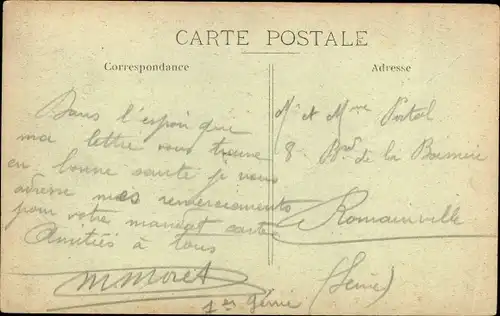 CARTE POSTALE
Correspondance
Adresse
Dans l'espoir que
ma lettre vous trouve
en bonne santé je vous
adresse mes remerciements
pour votre mandat carte
Amitiés à tous
M Moret
1er Génie
Mr et Mme Portal
8 Brd de la Boissière
Romainville
(Seine)